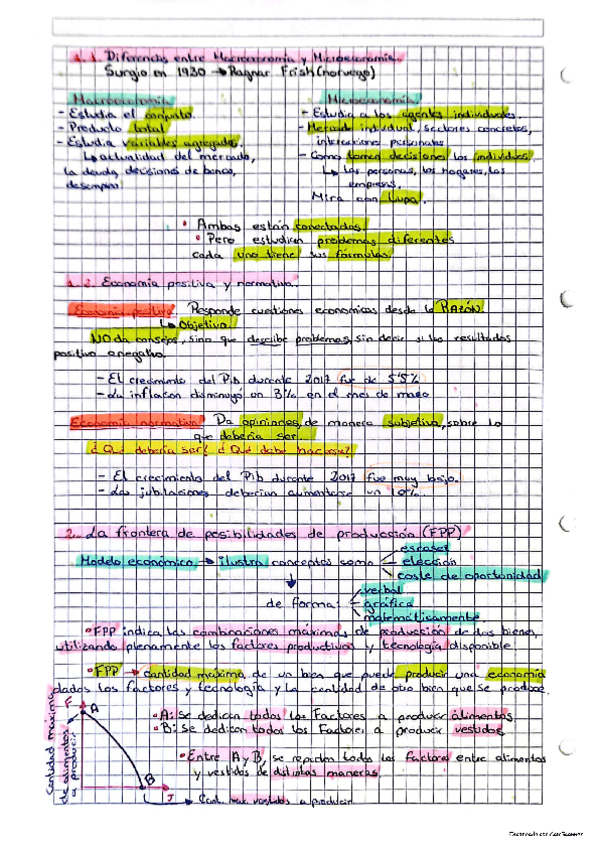 1.1. Diferencias entre Macroeconomía y Microeconomía.
Surgio en 1930 → Ragnar Frish (noruego)
Macroeconomía
- Estudia el conjunto.
- Producto total
- Estudia variables agregadas.
↳ actualidad del mercado,
la deuda, decisiones de banco,
desempleo.
Microeconomía
- Estudia a los agentes individuales
- Mercado individual, sectores concretos,
interacciones personales
- Como toman decisiones los individuos.
↳ las personas, los hogares, las
empresas,
Mira con Lupa.
• Ambas están conectadas.
• Pero estudian problemas diferentes
cada uno tiene sus fórmulas.
1.2. Economía positiva y normativa.
Economía positiva. Responde cuestiones economicas desde la RAZÓN.
↳ Objetivo.
NO da consejos, sino que describe problemas, sin decir si los resultados
positivo o negativo.
- El crecimiento del Pib durante 2017 fue de 5'5%
- La inflacion disminuyó un 3% en el mes de
Economía normativa. Da opiniones, de manera subjetiva, sobre lo
que debería ser.
¿Qué debería ser? ¿Qué debe hacerse?
- El crecimiento del Pib durante 2017 fue muy bajo.
- Las jubilaciones deberian aumentarse un 10%.
2. La frontera de posibilidades de producción (FPP)
Modelo económico → ilustra conceptos como
escasez
elección
coste de oportunidad
de forma:
verbal
gráfica
matemáticamente
• FPP indica las combinaciones máximas de producción de dos bienes,
utilizando plenamente los factores productivos y tecnología disponible
• FPP → cantidad máxima de un bien que puede producir una economía
dados los factores y tecnología y la cantidad de otro bien que se produce.
Cantidad máxima
de alimentos
a producir
F
A
B
J
• A: Se dedican todos los Factores a producir alimentos.
• B: Se dedican todos los Factores a producir vestidos.
• Entre A y B, se reparten todos los factores entre alimentos
y vestidos de distintas maneras.
→ Cant. max. vestidos a producir